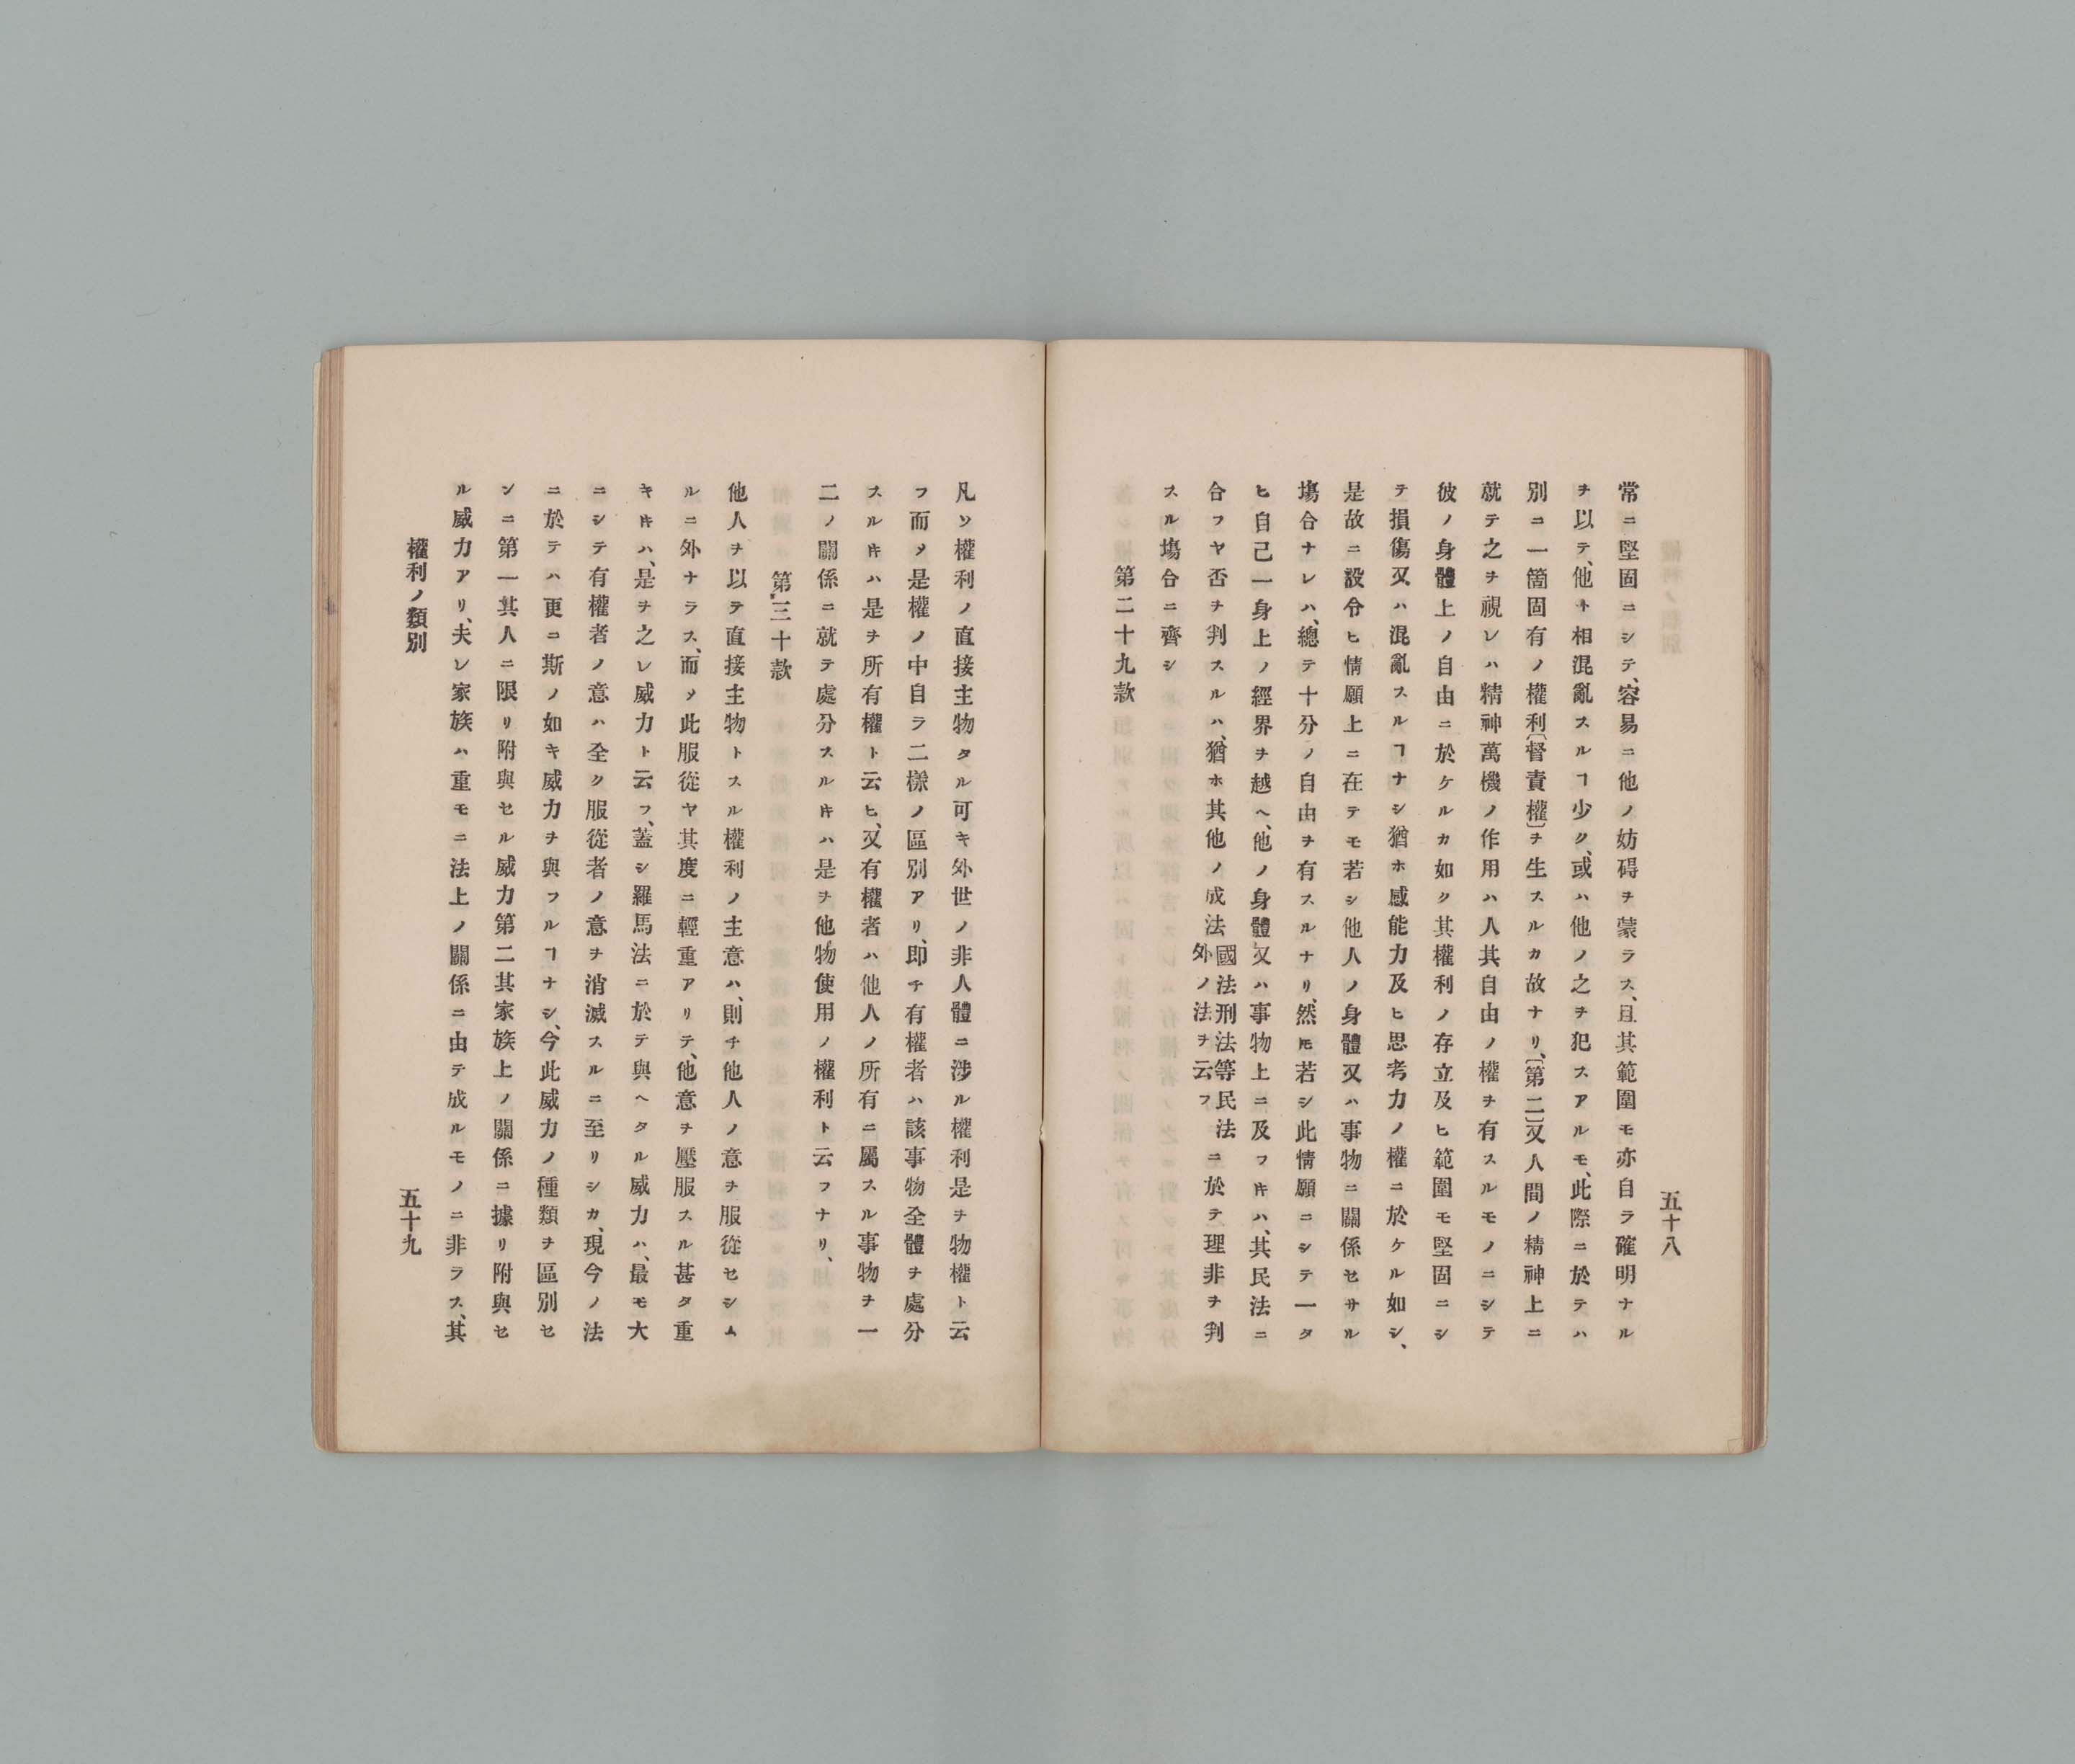 五十八
常ニ堅固ニシテ、容易ニ他ノ妨碍ヲ蒙ラス、且其範圍モ亦自ラ確明ナル
ヲ以テ、他ト相混亂スルヿ少ク、或ハ他ノ之ヲ犯スアルモ、此際ニ於テハ
別ニ一箇固有ノ權利〔督責權〕ヲ生スルカ故ナリ、〔第二〕又人間ノ精神上ニ
就テ之ヲ視レハ精神萬機ノ作用ハ人其自由ノ權ヲ有スルモノニシテ
彼ノ身體上ノ自由ニ於ケルカ如ク其權利ノ存立及ヒ範圍モ堅固ニシ
テ損傷又ハ混亂スルヿナシ猶ホ感能力及ヒ思考力ノ權ニ於ケル如シ、
是故ニ設令ヒ情願上ニ在テモ若シ他人ノ身體又ハ事物ニ關係セサル
塲合ナレハ、總テ十分ノ自由ヲ有スルナリ、然𪜈若シ此情願ニシテ一タ
ヒ自己一身上ノ經界ヲ越ヘ、他ノ身體又ハ事物上ニ及フ𪜈ハ、其民法ニ
合フヤ否ヲ判スルハ、猶ホ其他ノ成法國法刑法等民法外ノ法ヲ云フニ於テ理非ヲ判
スル塲合ニ齊シ
第二十九款
凡ソ權利ノ直接主物タル可キ外世ノ非人體ニ渉ル權利是ヲ物權ト云
フ而〆是權ノ中自ラ二樣ノ區別アリ、即チ有權者ハ該事物全體ヲ處分
スル𪜈ハ是ヲ所有權ト云ヒ、又有權者ハ他人ノ所有ニ屬スル事物ヲ一
二ノ關係ニ就テ處分スル𪜈ハ是ヲ他物使用ノ權利ト云フナリ、
第三十款
他人ヲ以テ直接主物トスル權利ノ主意ハ、則チ他人ノ意ヲ服從セシム
ルニ外ナラス、而〆此服從ヤ其度ニ輕重アリテ、他意ヲ壓服スル甚タ重
キ𪜈ハ、是ヲ之レ威力ト云フ、蓋シ羅馬法ニ於テ與ヘタル威力ハ、最モ大
ニシテ有權者ノ意ハ全ク服從者ノ意ヲ消滅スルニ至リシカ、現今ノ法
ニ於テハ更ニ斯ノ如キ威力ヲ與フルヿナシ、今此威力ノ種類ヲ區別セ
ンニ第一其人ニ限リ附與セル威力第二其家族上ノ關係ニ據リ附與セ
ル威力アリ、夫レ家族ハ重モニ法上ノ關係ニ由テ成ルモノニ非ラス、其
權利ノ類別
五十九